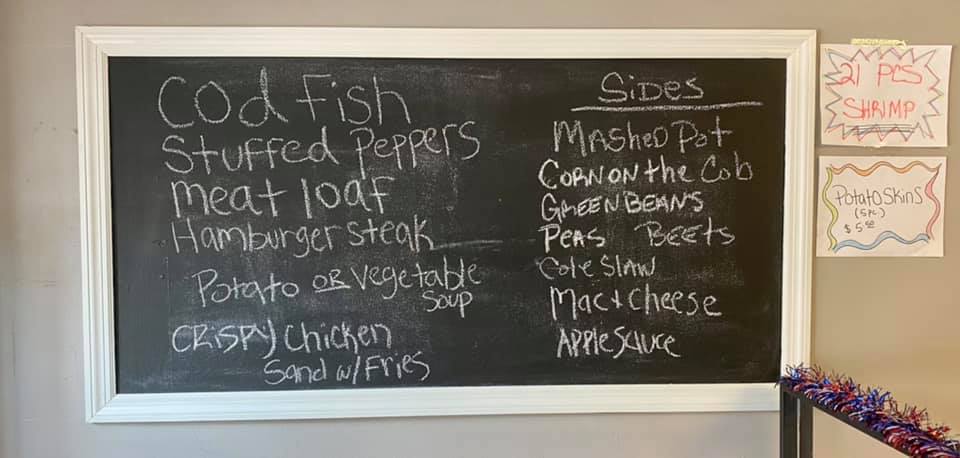 Cod Fish
Stuffed Peppers
meat loaf
Hamburger steak
Potato OR Vegetable
Soup
CRISPY Chicken
Sand w/ Fries
SIDES
MASHED Pot
CORN ON the Cob
GREEN BEANS
PEAS BEETS
Cole SLAW
Mac + Cheese
APPLE SAUCE
21 PCS
SHRIMP
POTATO SKINS
(5 PC.)
$ 5.50